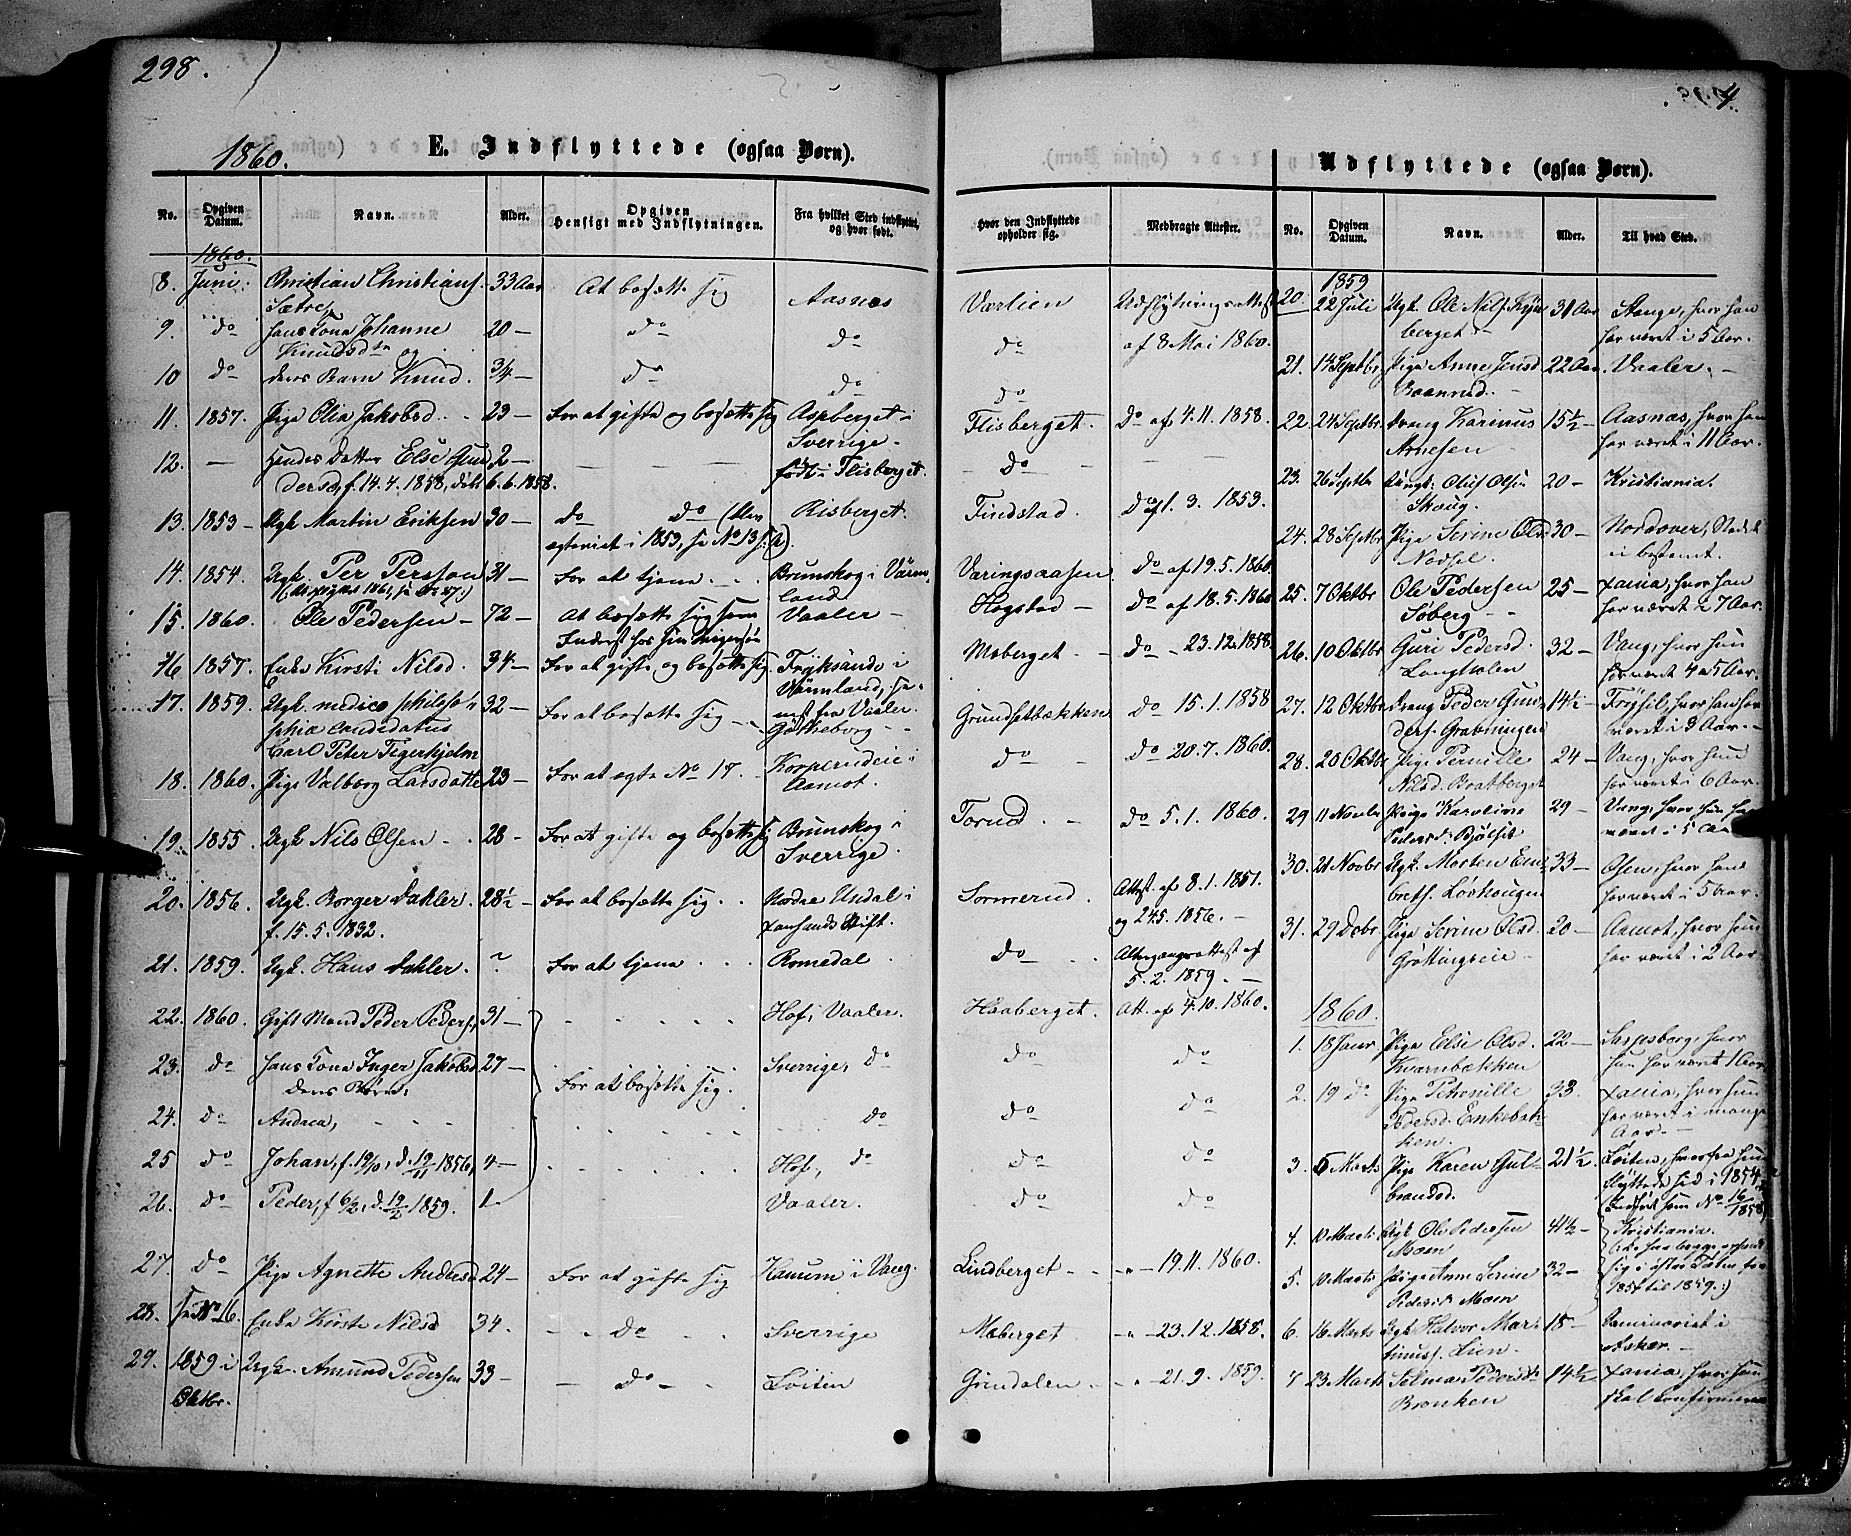 298.
1860.
E. Indflyttede (ogsaa Børn).
No.
Opgiven Datum.
Navn.
Alder.
Opgiven Hensigt med Indflytningen.
Fra hvilket Sted indflyttet, og hvor født.
Hvor den Indflyttede opholder sig.
Medbragte Attester.
1860.
8. Juni. Christian Christians. 33 Aar At bosætte sig Aasnes Værlien Udflytningsattest
Sætre,
9. do hans Kona Johanne 20 — do do do af 8 Mai 1860.
Knudsdtr og
10 do deres Barn Knud. 3/4 — do do do
11. 1857. Pige Olia Jakobsd. 23 — For at gifte og bosætte sig Aspberget i Flisberget. do af 4.11.1858.
Sverrige.
12. — Hendes Datter Else Gun 2 — født i Flisberget. do
dersd, f. 14.4.1858, døbt 6.6.1858.
13. 1853 — Ugk. Martin Eriksen 30 — do do Risberget. Findstad. do af 1.3.1853.
ægteviet i 1853, se No 13
14. 1854. Ugk. Per Persson 31 — For at tjene Brunskog i Värm Væringsaasen do af 19.5.1860.
land.
15. 1860. Ole Pedersen — 72 — At bosætte sig som Vaaler — Hogstad — do af 18.5.1860
Inderst hos sin
16 1857. Enke Kirsti Nilsd. 34 — For at gifte og bosætte sig Fryksände i Moberget do — 23.12.1858.
Värmland,
nest fra Vaaler.
17. 1859. Ugk. medico philoso 32 — For at bosætte sig Götheborg Grundsetbækken do 15.1.1858
phiæ candidatus
Carl Peter Tigerhjelm
18. 1860. Pige Valborg Larsdatte 23 — For at ægte No 17. Korperudeie i do do 20.7.1860.
Aamot.
19. 1855. Ugk. Nils Olsen 28 — For at gifte og bosætte sig Brunskog i Torud do 5.1.1860.
Sverrige.
20. 1856. Ugk. Borger Dahler. 28½ — For at bosætte sig. Nodre Undal i Sormerud. Attest. af 8.1.1851.
f. 15.5.1832. xansands Stift. og 24.5.1856.
21. 1859. Ugk. Hans Dahler. ? For at tjene Romedal do Altergangsattest af
5.2.1859.
22. 1860. Gift Mand Peder Peders. 31 — Hof, Vaaler. Haaberget. Att. af 4.10.1860.
23. do hans Kona Inger Jakobsd 27 — For at bosætte sig. Sverrige, do do do
deres Børn:
24. do Andrea, do do do
25 do Johan, f. 19/10, d. 19/11 1856, 4 — Hof, do do do
26. do Peder, f 6/2, d. 19/2 1859. 1 — Vaaler. do do
27. do Pige Agnette Andersd 24 — For at gifte sig Kanum i Vang. Lindberget - " — 19.11.1860.
28. se No 16. Enke Kirsti Nilsd 34. do Sverrige Moberget - " — 23.12.1858.
29. 1859 i Ugk. Amund Pedersen 33 — do Løiten Grindalen - " — 21.9.1859.
Oktbr.
Udflyttede (ogsaa Børn).
No.
Opgiven Datum.
Navn.
Alder.
Til hvad Sted.
1859
20. 22 Juli Ugk. Ole Nils. 31 Aar Stange, hvor han
berget har været i 5 Aar.
21. 14 Septbr Pige Anne Jensd 22 Aar. Vaaler.
22. 24 Septbr. Dreng Karinus 15½ — Aasnæs, hvor han
Arnesen har været i 11 Aar.
23. 26 Septbr Ungk. Oluf Olsen 20 — Kristiania.
Skoug.
24. 28 Septbr Pige Serine Olsd 30 — Nordover, Stedet
Nodsel. ei bestemt.
25. 7 Oktbr Ole Pedersen 25 — xania, hvor han
Soberg har været i 7 Aar.
26. 10 Oktbr Guri Pedersd. 32 — Vang, hvor hun
Langholen har været 4 a 5 Aar.
27. 12 Oktbr Dreng Peder Gun 14½ — Trysil, hvor han har
ders. Grabningen været i 3 Aar.
28. 20 Oktbr Pige Pernille 24 — Vang, hvor hun
Nilsd. Bratberget har været i 6 Aar.
29 11 Novbr Pige Karoline 29 — Vang, hvor hun har
Pedersd. Bjølset været i 5 Aar
30. 21 Novbr Ugk. Morten Em 33 — Osen, hvor han
brets. Lørhougen har været i 5 Aar.
31. 29 Debr Pige Serine Olsd. 20 — Aamot, hvor hun
Grøttingseie har været i 2 Aar
1860.
1. 18 Janr Pige Else Olsd. 22 — Sarpsborg, hvor
Kværnbækken hun har været 1 Aar
2. 19 do Pige Petronille 33. xania, hvor hun
Pedersd. Enkebak har været i mange
ken. Aar.
3. 5 Marts Pige Karen Gul 21½ Løiten, hvorfra hun
brandsd. flyttede hid i 1854,
(Indført som No 16/1858)
4. 10 Marts Ugk Ole Pedersen 41½ Kristiania.
Moen
5. 10 Marts Pige Anne Serine 32 — sig i østre Toten fra
Pedersd. Moen 1857 til 1859.)
6. 16 Marts Ugk Halvor Mar 18 — Seminariet i
tinuss. Lien. Asker.
7 23 Marts Selma Pedersdtr 14½ xania, hvor hun
Bronken skal confirmeres